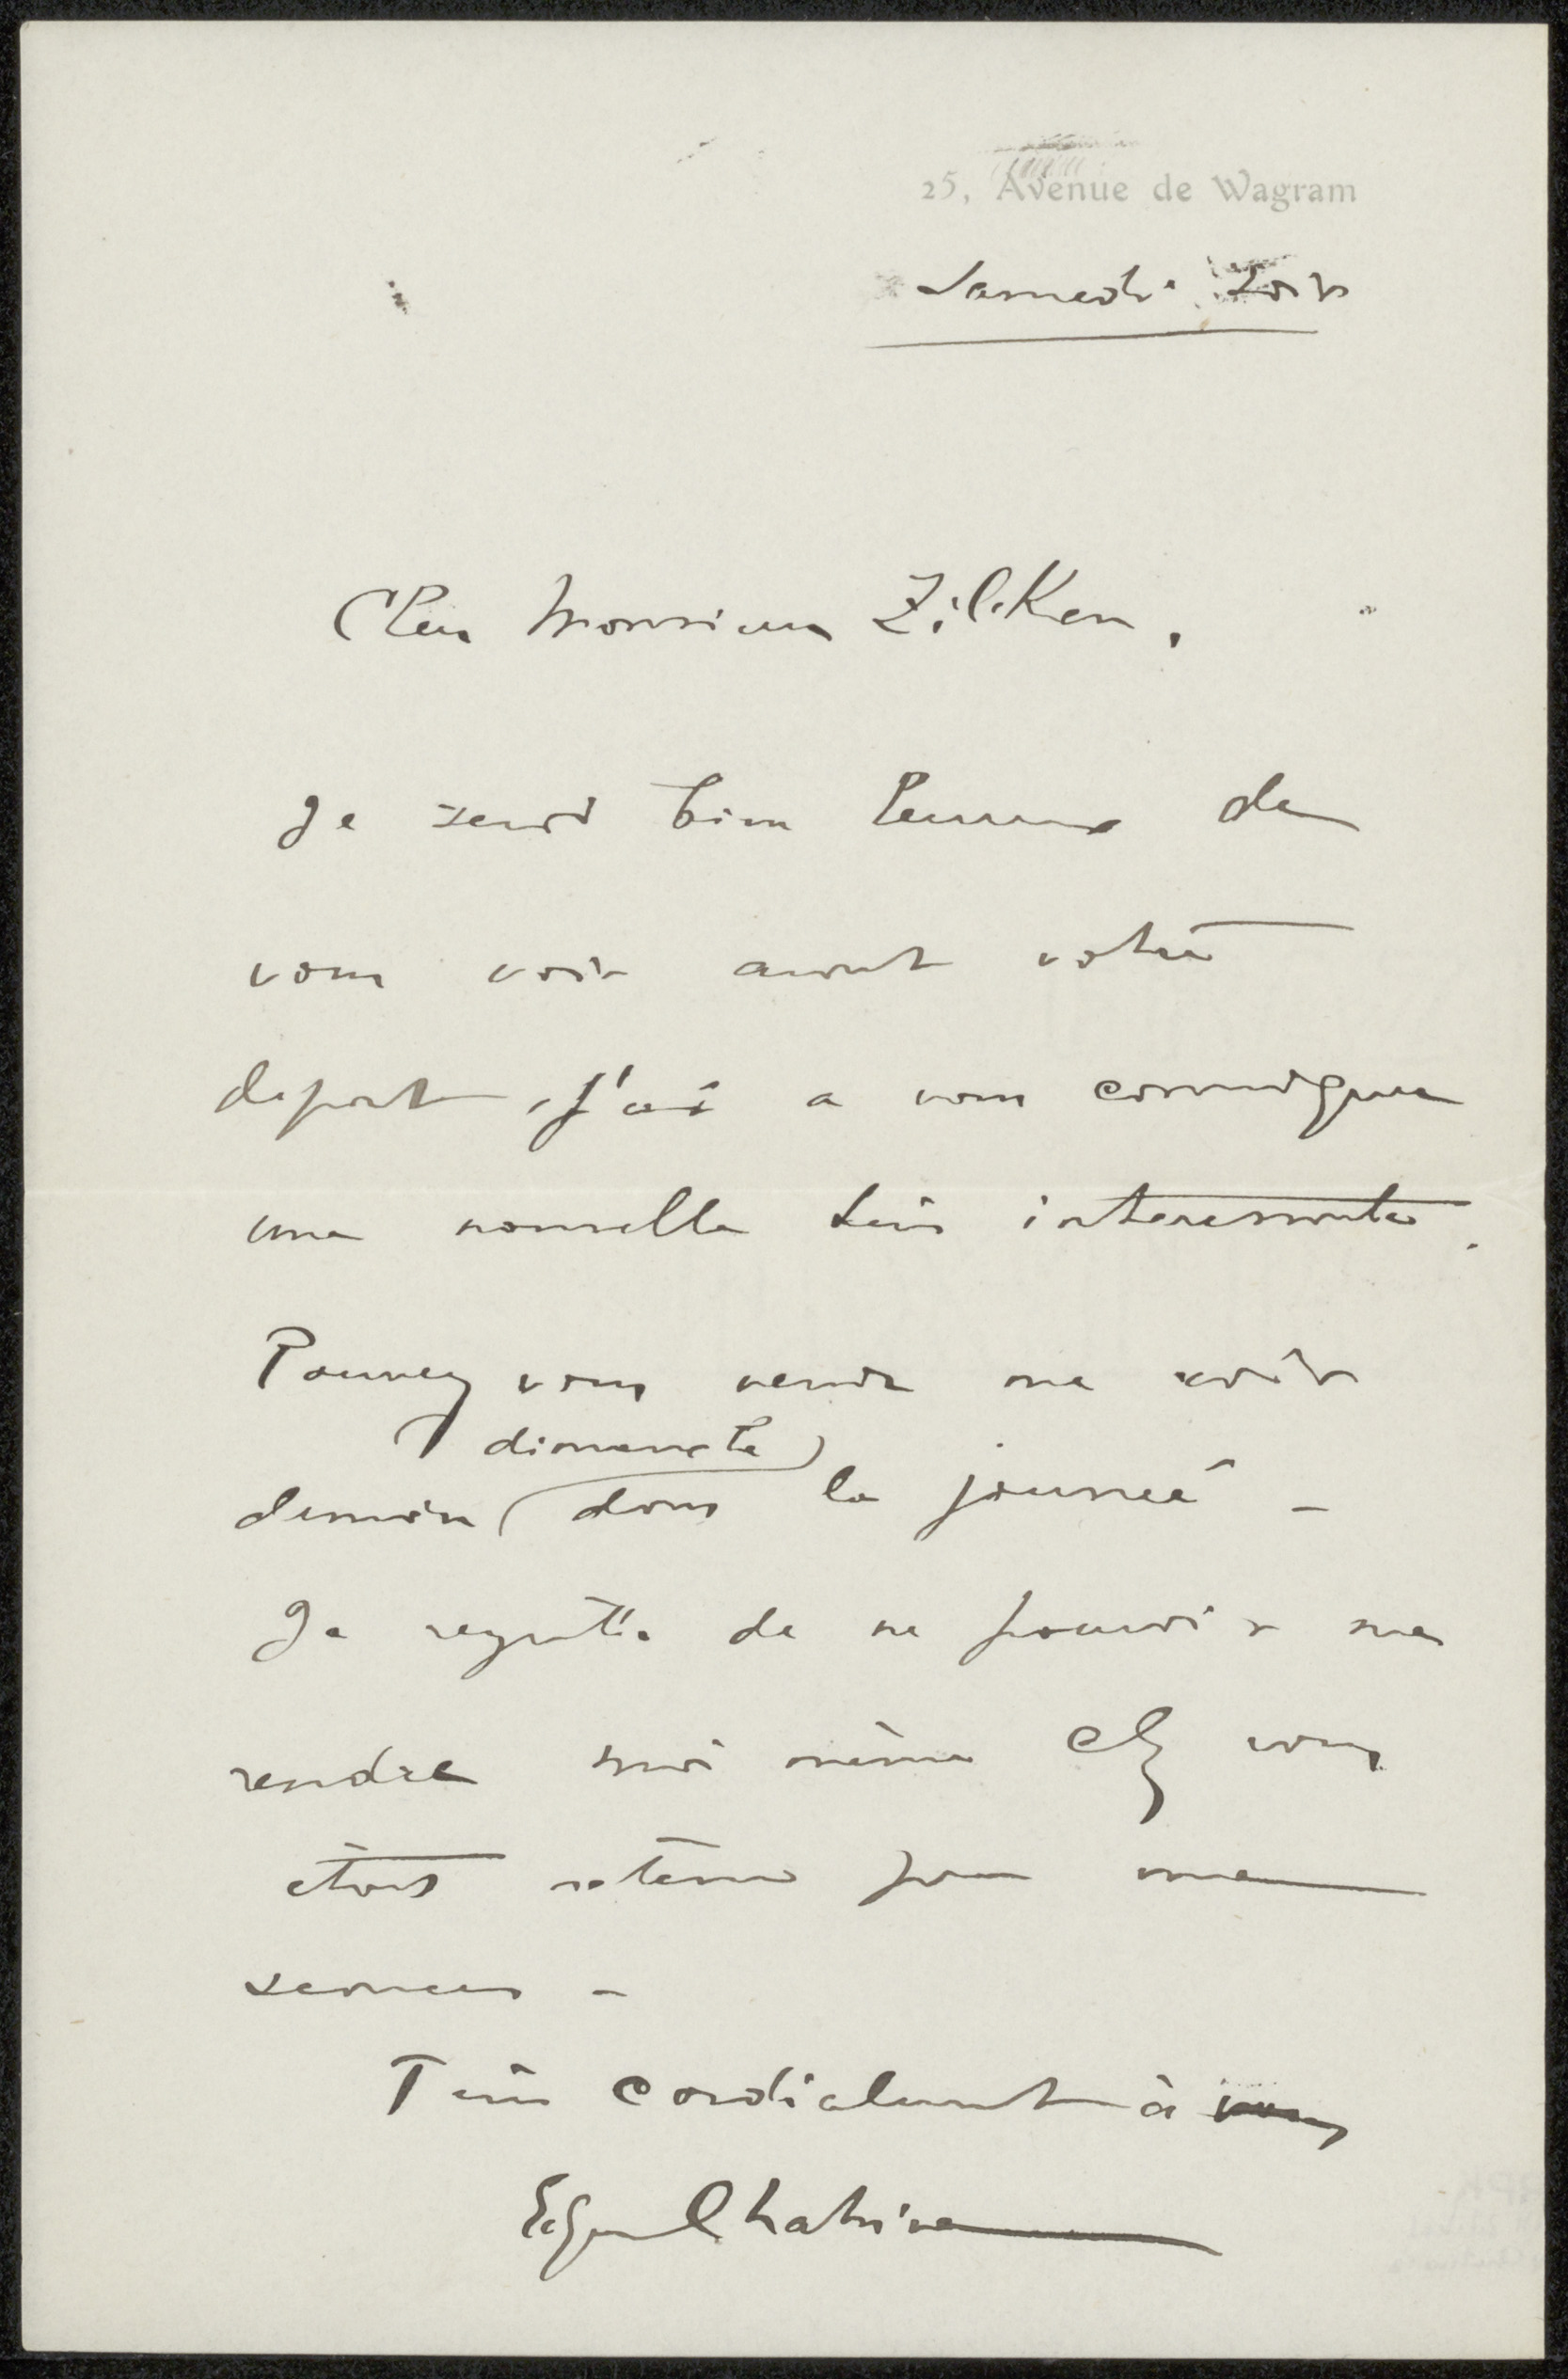 25, Avenue de Wagram
Samedi soir
Cher Monsieur Zilcken,
Je serai bien heureux de
vous voir avant votre
depart, j'ai a vous communiquer
une nouvelle très interessante.
Pouvez vous venir me voir
dimanche
demain dans la journeé -
Je regrette de ne pouvoir me
rendre moi même chez vous
étant retenu par une
seance -
Très cordialement à vous
Edgar Chahine